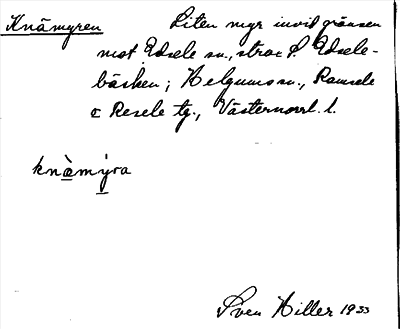 Knämyren Liten myr invid gränsen
mot Edsele sn., strax S. Edsele-
bäcken; Helgums sn., Ramsele
o Resele tg., Västernorrl. l.
knä̀mýra
Sven Hiller 1933